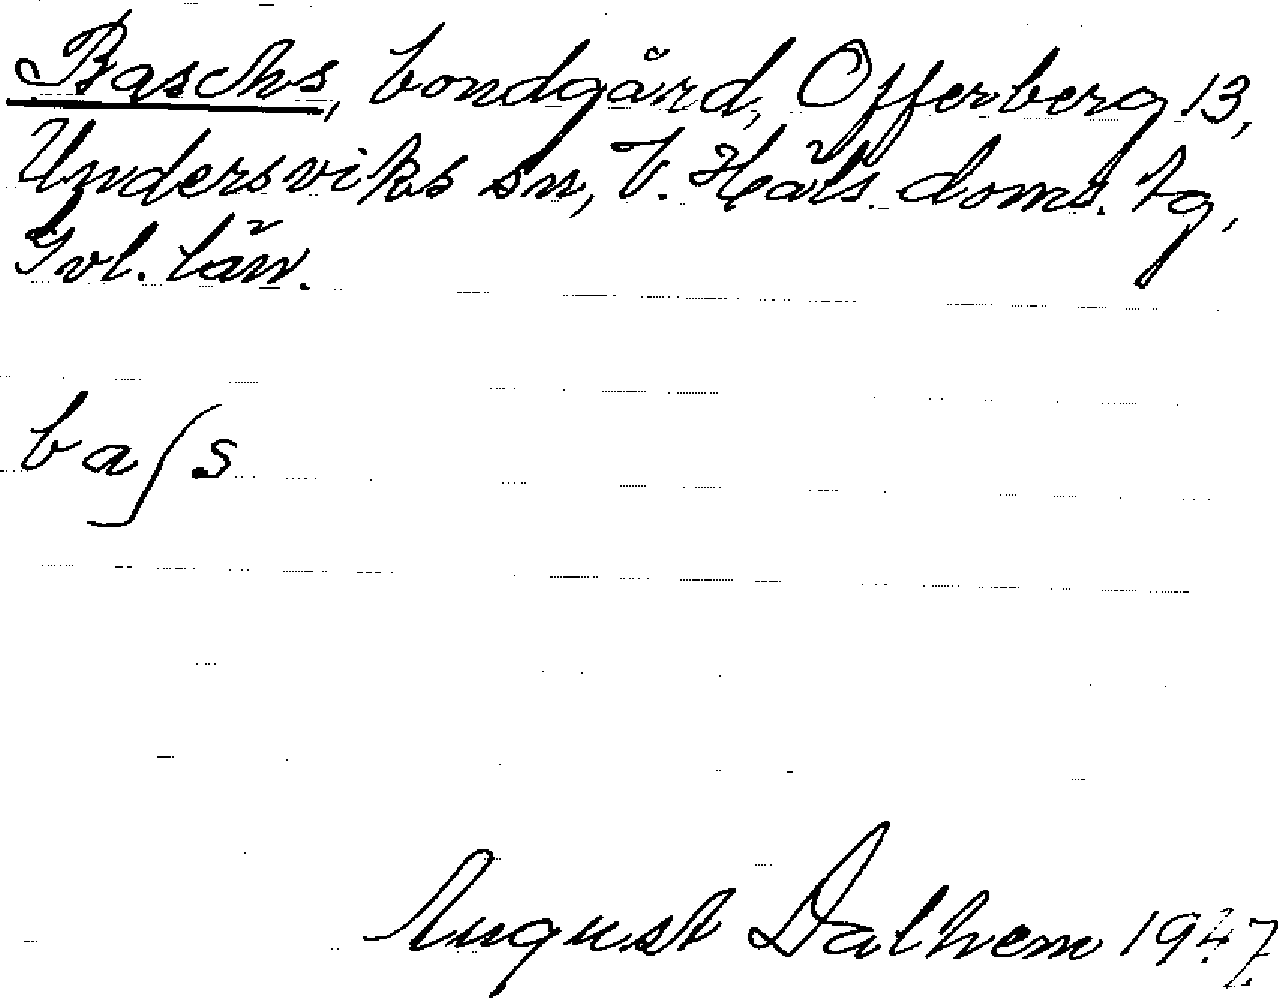 Baschs, bondgård, Offerberg 13,
Undersviks sn, V. Häls. doms. tg,
Gvl. län.
baʃs
August Dalhem 1947.